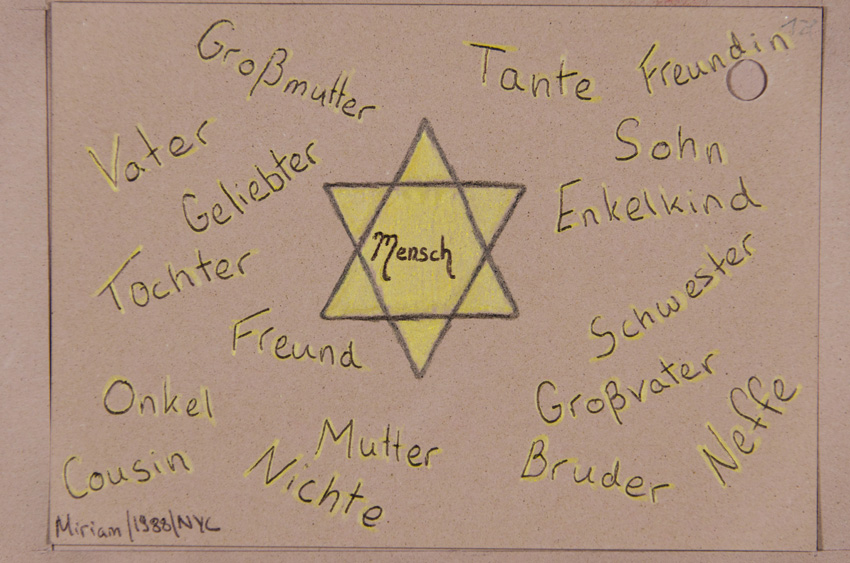 Großmutter
Tante
Freundin
Vater
Geliebter
Sohn
Enkelkind
Mensch
Tochter
Schwester
Freund
Großvater
Onkel
Neffe
Mutter
Cousin
Nichte
Bruder
Miriam/1988/NYC